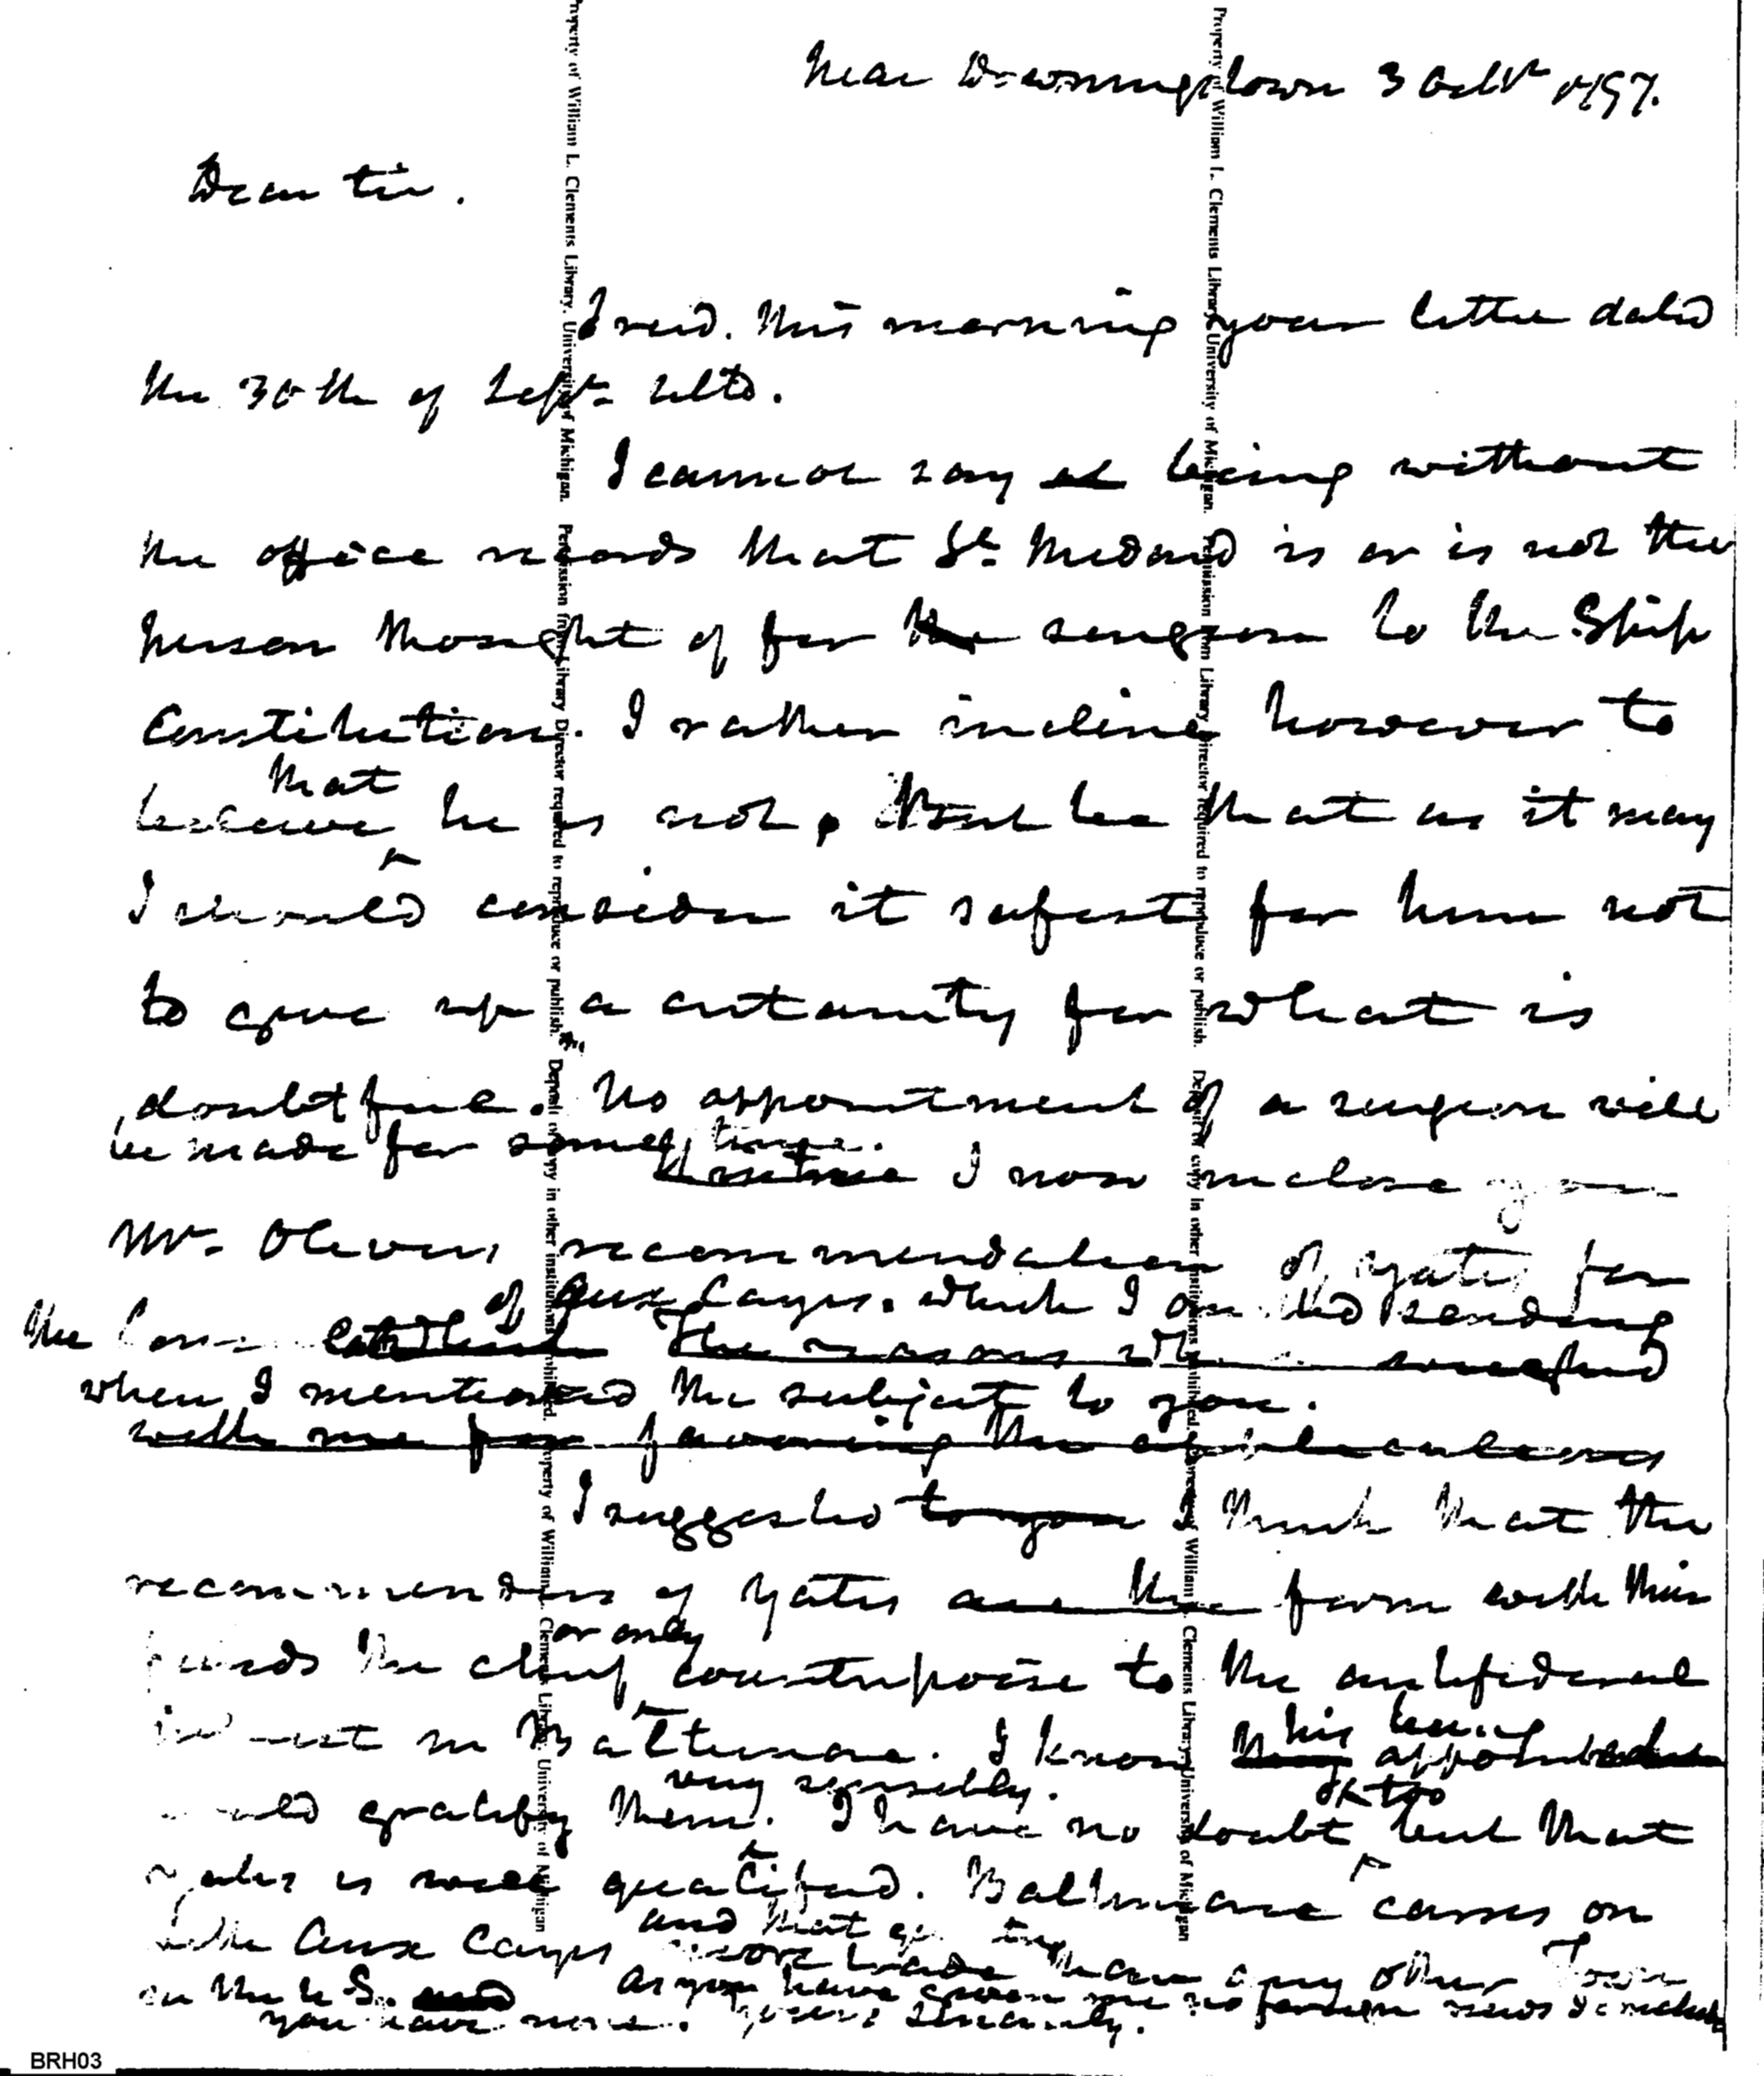 Near Downingstown 3 Octr 1797.
Dear Sir.
I recd. this morning your letter dated
the 30th of Sept. ulto.
I cannot say at being without
the office records that St. Medard is or is not the
person thought of for the surgeon to the Ship
Constitution. I rather incline however to
that
believe he is not, But be that as it may
I should consider it safest for him not
to give up a certainty for what is
doubtful. No appointment of a surgeon will
be made for some time.
I now inclose you
Mr. Olivers recommendation of Yates for
of Aux Cayes. which I omitted sending
the The reasons
when I mentioned the subject to you.
with me for favouring the applications
I suggested to you I think that the
recommenders of Yates are the form with their
or only
friends the chief counterpoise to the antifederal
interest in Baltimore. I know his being appointed
very sensibly.
would gratify them. I have no doubt too but that
Yates is well qualified. Baltimore carries on
and that
with Aux Cayes more trade than any other Town
in the U.S. and As you have given me no foreign news I conclude
you have none. Yours sincerely.
Property of William L. Clements Library, University of Michigan. Permission from Library Director required to reproduce or publish. Deposit of copy in other institutions prohibited. Property of William L. Clements Library, University of Michigan
Property of William L. Clements Library, University of Michigan. Permission from Library Director required to reproduce or publish. Deposit of copy in other institutions prohibited. Property of William L. Clements Library, University of Michigan
BRH03